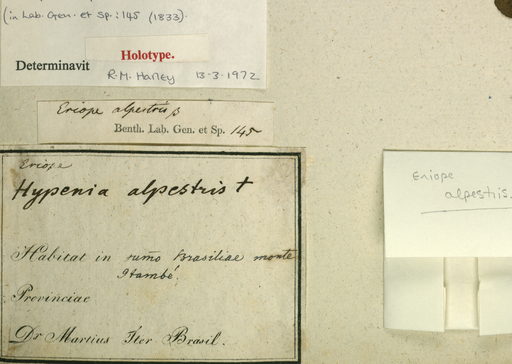 (in Lab. Gen. et Sp.: 145 (1833).
Holotype.
Determinavit R. M. Harley 13-3-1972
Eriope alpestris β
Benth. Lab. Gen. et Sp. 145
Eriope
Hypenia alpestris +
Habitat in Brasiliae monte
Itambé.
Provinciae
Dr Martius Iter Brasil.
Eriope
alpestris.